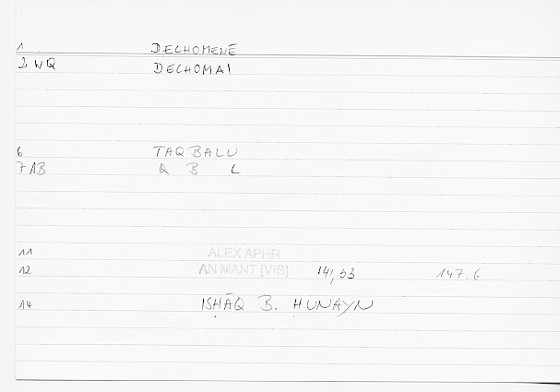 1 DECHOMENĒ
2 WQ DECHOMAI
6 TAQBALU
7 AB Q B L
11 ALEX APHR
12 AN MANT [VIS] 141,53 147.6
14 ISḤĀQ B. ḤUNAYN